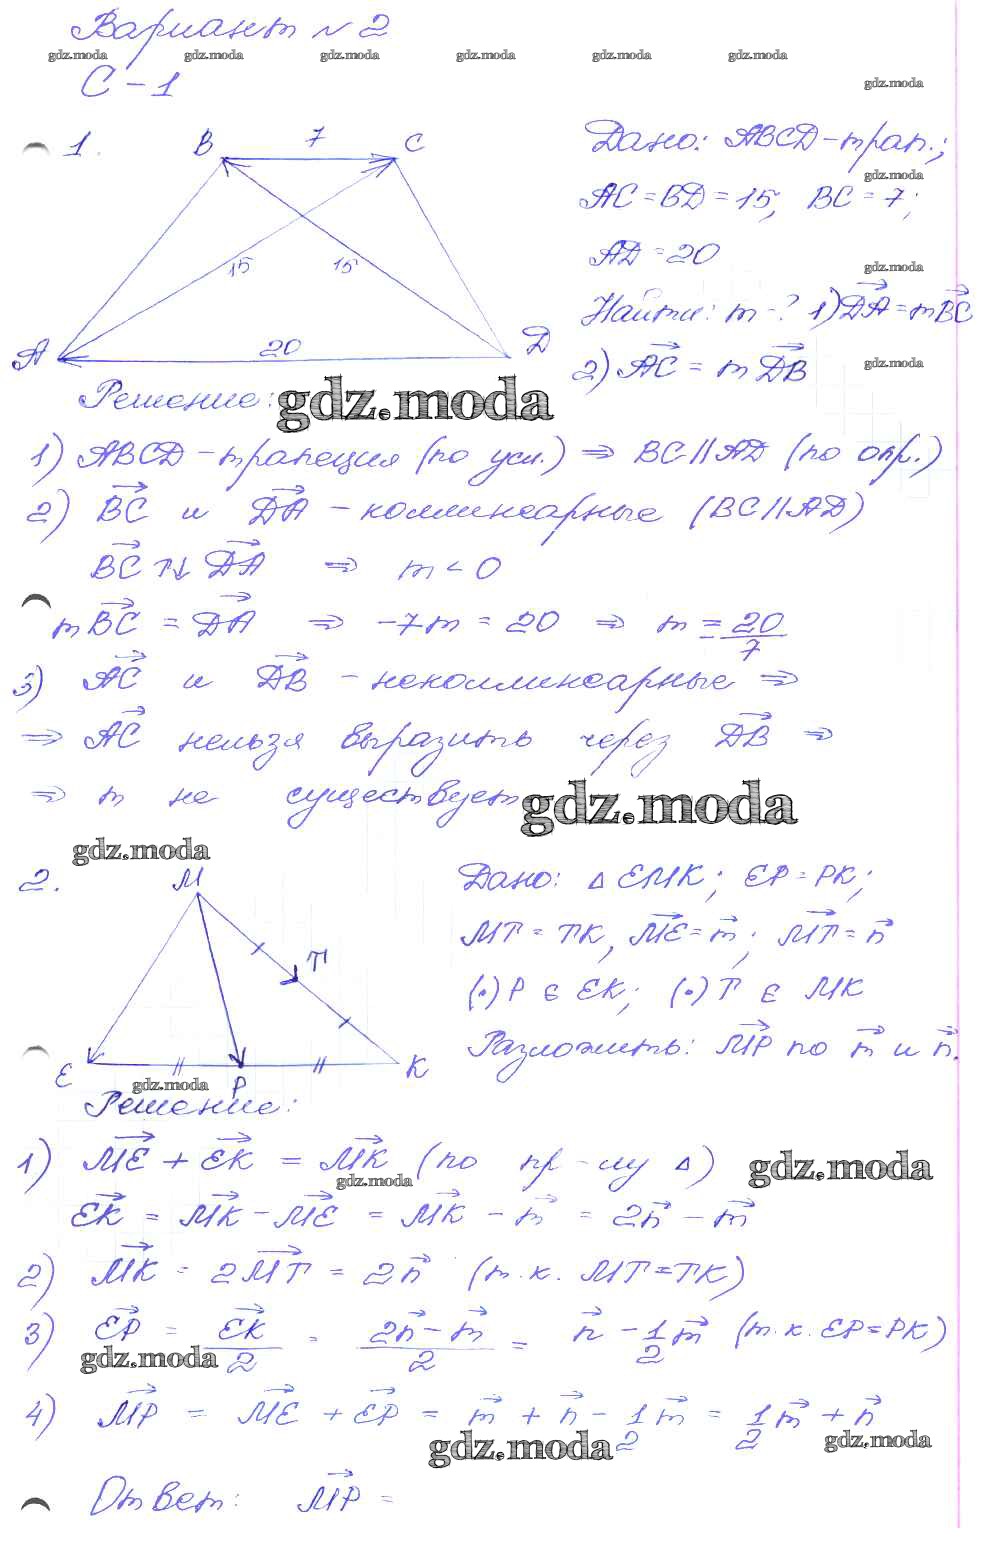 Вариант №2
gdz.moda gdz.moda gdz.moda gdz.moda gdz.moda gdz.moda
С-1
gdz.moda
1.
B 7 C
15 15
A 20 D
Дано: ABCD-трап.;
gdz.moda
AC=BD=15; BC=7;
AD=20
gdz.moda
Найти: m-? 1) DA=mBC
2) AC=mDB
gdz.moda
Решение:
gdz.moda
1) ABCD-трапеция (по усл.) ⇒ BC∥AD (по опр.)
2) BC и DA - коллинеарные (BC∥AD)
BC↑↓DA ⇒ m<0
mBC = DA ⇒ -7m = 20 ⇒ m = -20/7
3) AC и DB - неколлинеарные ⇒
⇒ AC нельзя выразить через DB ⇒
⇒ m не существует
gdz.moda
gdz.moda
2.
M
T
E P K
Дано: △EMK; EP=PK;
MT=TK, ME=m; MT=n
(·)P ∈ EK; (·)T ∈ MK
Разложить: MP по m и n.
gdz.moda
Решение:
1) ME + EK = MK (по пр-лу △)
gdz.moda
gdz.moda
EK = MK - ME = MK - m = 2n - m
2) MK = 2MT = 2n (т.к. MT=TK)
3) EP = EK/2 = (2n - m)/2 = n - 1/2 m (т.к. EP=PK)
gdz.moda
4) MP = ME + EP = m + n - 1/2 m = 1/2 m + n
gdz.moda
gdz.moda
Ответ: MP =